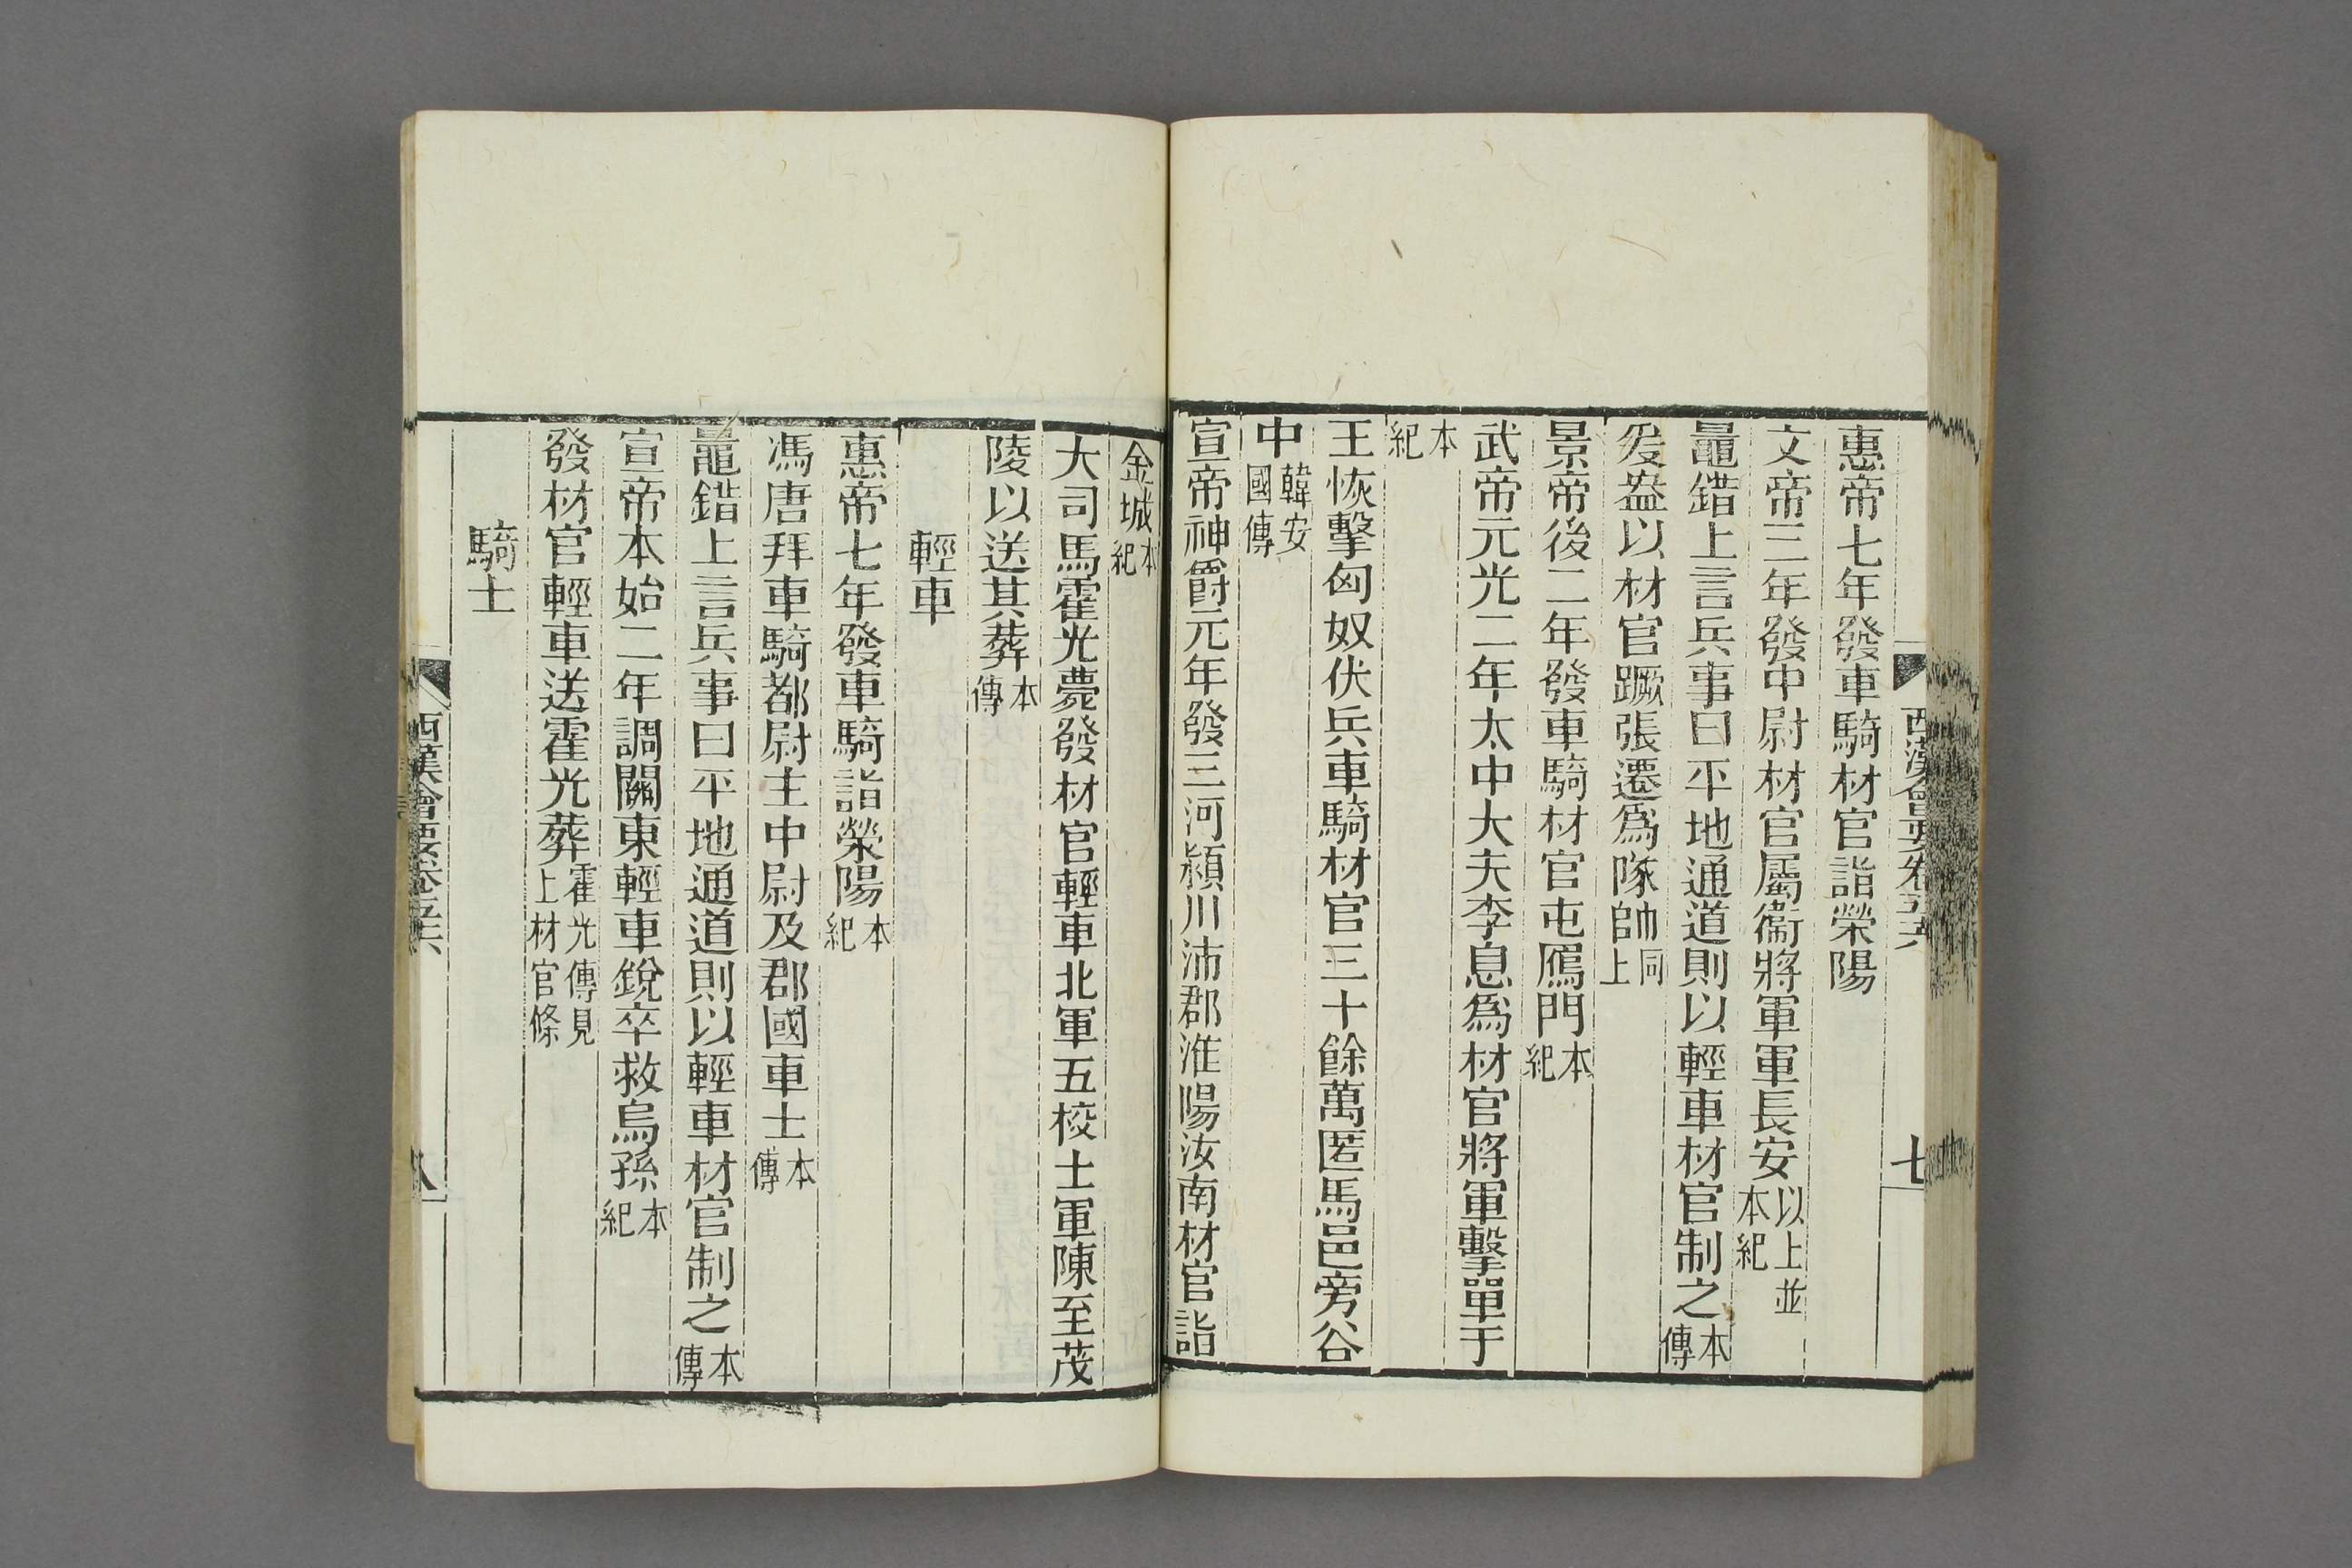 惠帝七年發車騎材官詣滎陽
文帝三年發中尉材官屬衞將軍軍長安以上並本紀
鼂錯上言兵事曰平地通道則以輕車材官制之本傳
爰盎以材官蹶張遷爲隊帥同上
景帝後二年發車騎材官屯鴈門本紀
武帝元光二年太中大夫李息爲材官將軍擊單于
本紀
王恢擊匈奴伏兵車騎材官三十餘萬匿馬邑旁谷
中韓安國傳
宣帝神爵元年發三河潁川沛郡淮陽汝南材官詣
金城本紀
大司馬霍光薨發材官輕車北軍五校士軍陳至茂
陵以送其葬本傳
輕車
惠帝七年發車騎詣滎陽本紀
馮唐拜車騎都尉主中尉及郡國車士本傳
鼂錯上言兵事曰平地通道則以輕車材官制之本傳
宣帝本始二年調關東輕車銳卒救烏孫本紀
發材官輕車送霍光葬霍光傳見上材官條
騎士
西漢會要卷五十六
七
西漢會要卷五十六
八